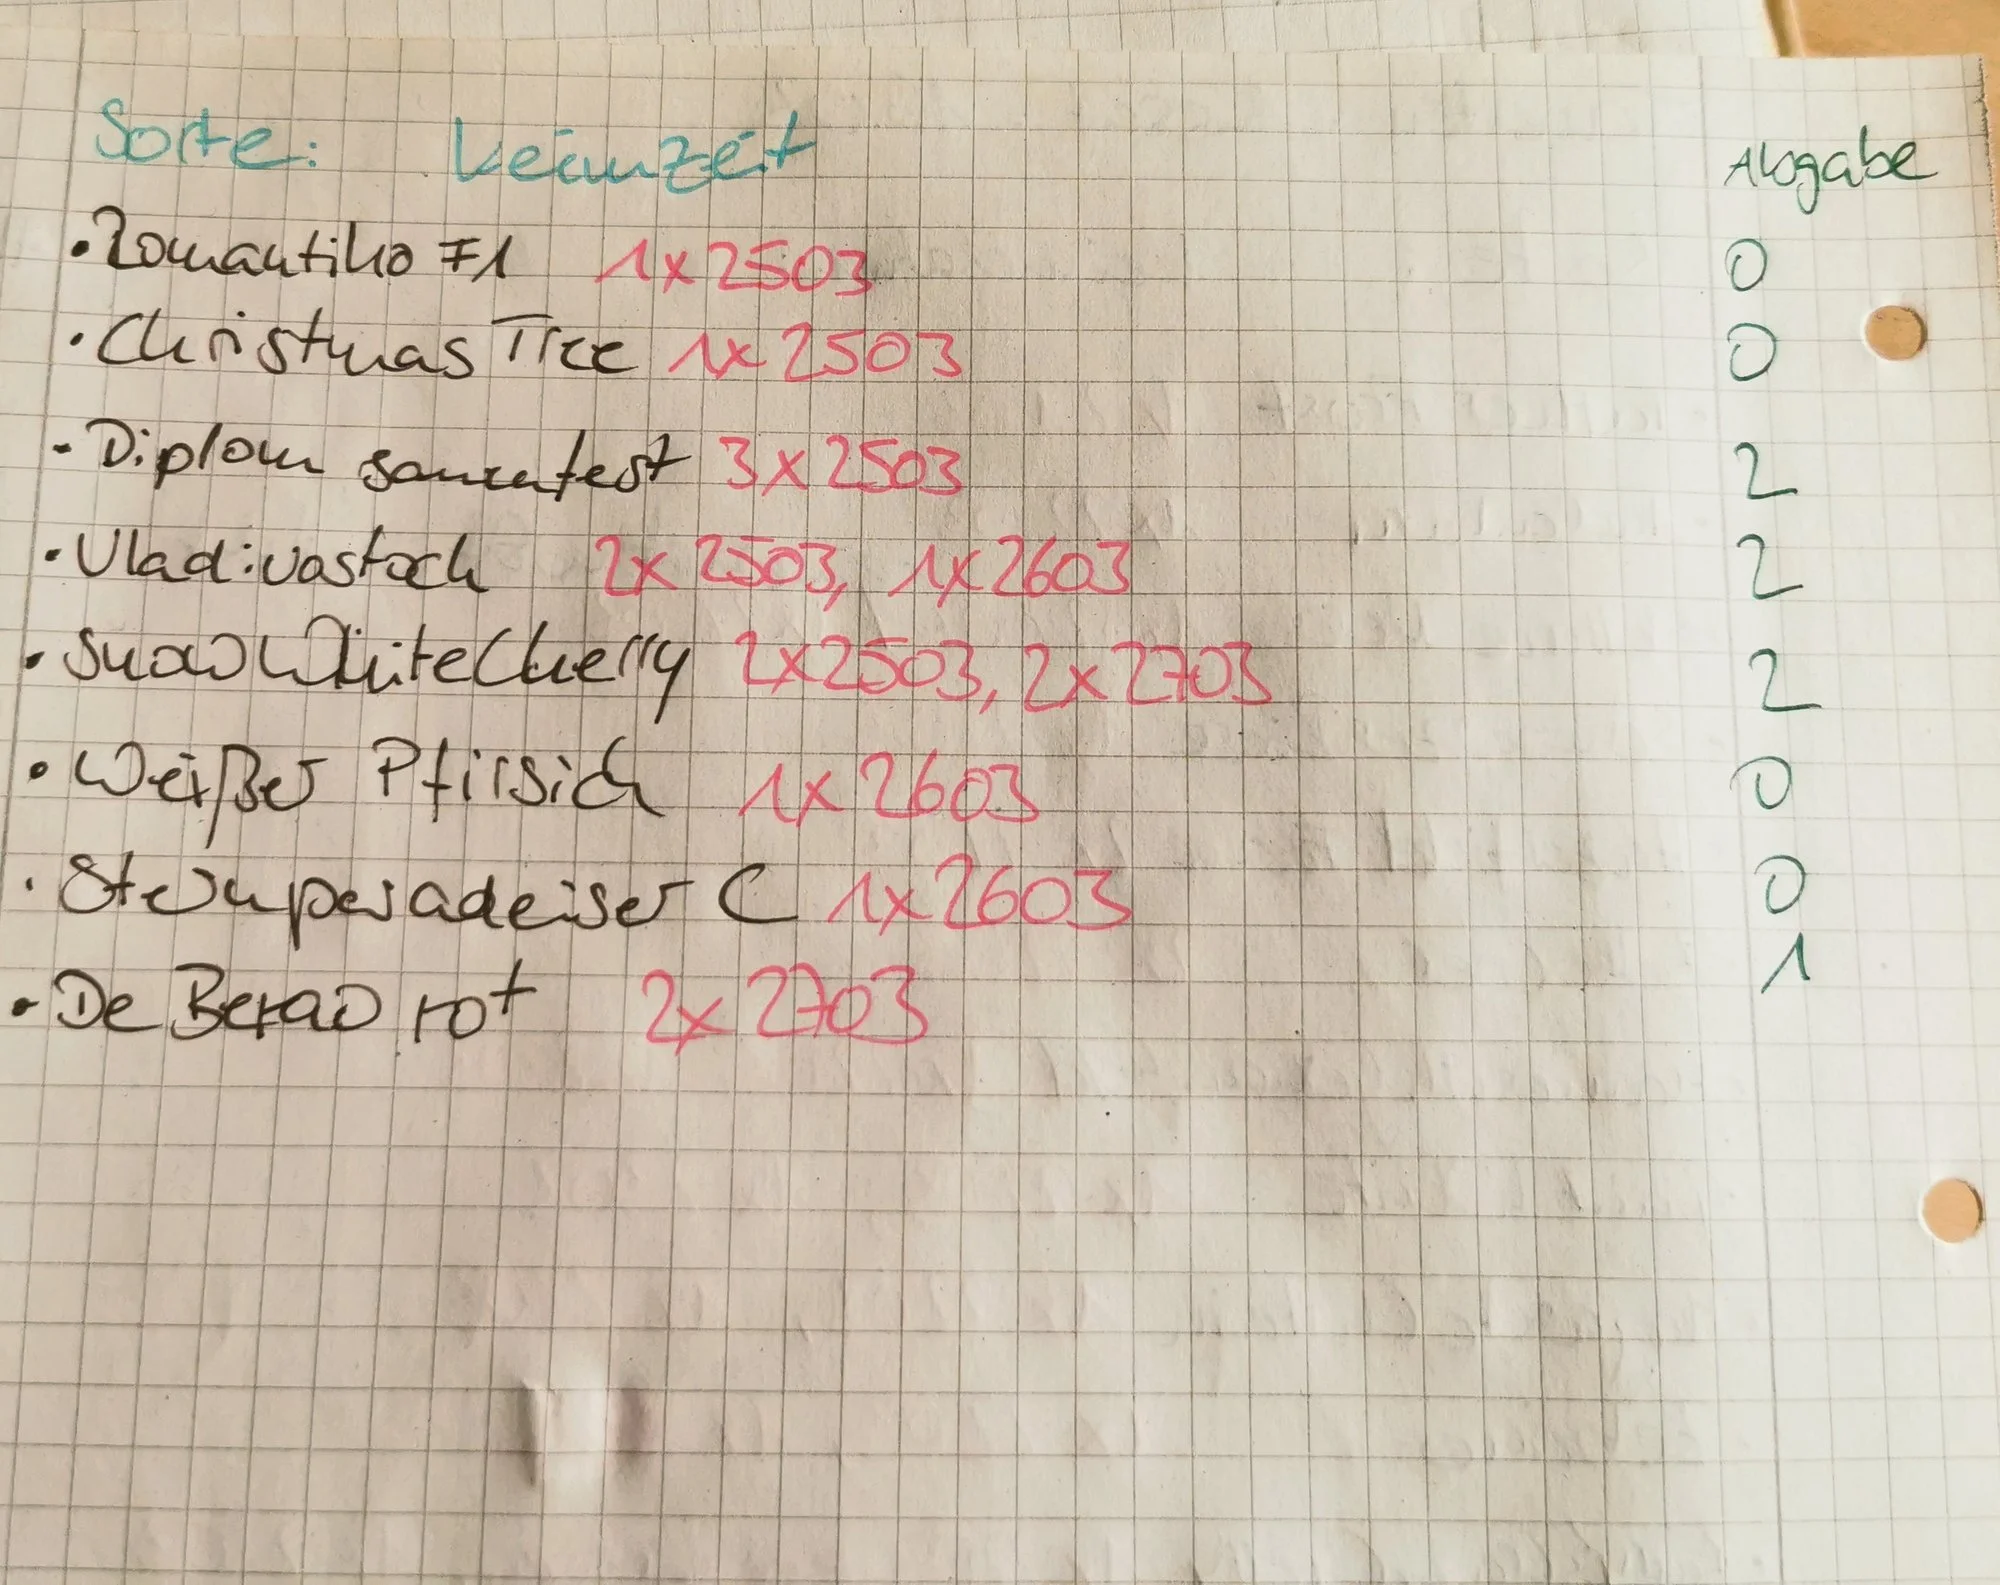 Sorte: Keimzeit Abgabe
• Romantiko F1 1x2503 0
• Christmas Tree 1x2503 0
- Diplom samentest 3x2503 2
• Vladivostock 2x2503, 1x2603 2
• Snow White Cherry 2x2503, 2x2703 2
• Weißer Pfirsich 1x2603 0
• Sternparadeiser C 1x2603 0
• De Berao rot 2x2703 1